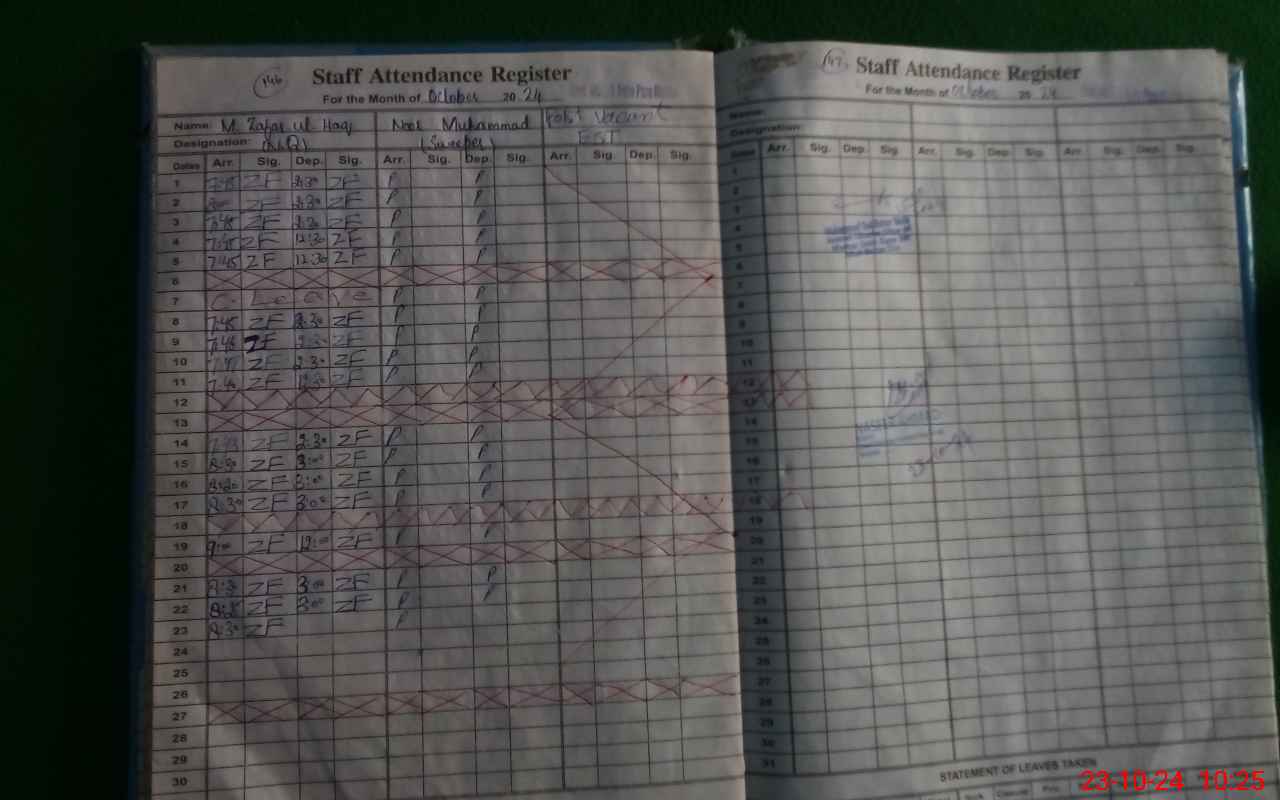 146
Staff Attendance Register
For the Month of October 2024
Name: M. Zafar ul Haq Noor Muhammad Post Vacant
Designation: (Sweeper) EST
Dates Arr. Sig. Dep. Sig. Arr. Sig. Dep. Sig. Arr. Sig. Dep. Sig.
1 7:45 ZF 2:30 ZF P P
2 ZF 2:30 ZF P P
3 7:45 ZF 2:30 ZF P P
4 7:45 ZF 12:30 ZF P P
5 7:45 ZF 12:30 ZF P P
6
7 C. Leave P P
8 7:45 ZF 2:30 ZF P P
9 7:45 ZF 2:30 ZF P P
10 ZF 2:30 ZF P P
11 7:45 ZF 12:30 ZF P P
12
13
14 ZF 2:30 ZF P P
15 8:30 ZF 3:00 ZF P P
16 8:20 ZF 3:00 ZF P P
17 8:30 ZF 3:00 ZF P P
18
19 9:00 ZF 12:00 ZF P P
20
21 8:30 ZF 3:00 ZF P P
22 ZF 3:00 ZF P P
23 8:30 ZF P
24
25
26
27
28
29
30
147
Staff Attendance Register
For the Month of October 2024
Name:
Designation:
Dates Arr. Sig. Dep. Sig. Arr. Sig. Dep. Sig. Arr. Sig. Dep. Sig.
1
2
3
4
5
6
7
8
9
10
11
12
13
14
15
16
17
18
19
20
21
22
23
24
25
26
27
28
29
30
31
STATEMENT OF LEAVES TAKEN
23-10-24 10:25